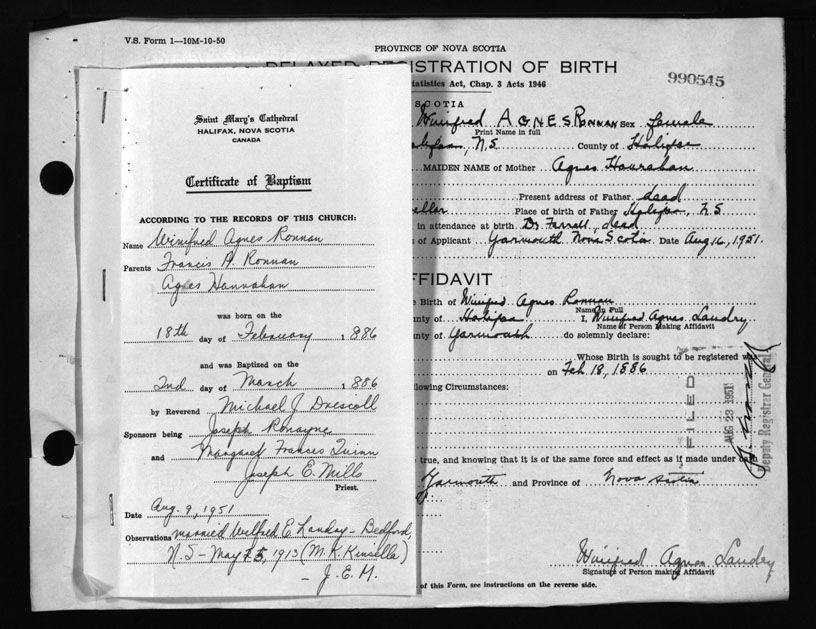 V.S. Form 1—10M-10-50
PROVINCE OF NOVA SCOTIA
DELAYED REGISTRATION OF BIRTH
990545
Statistics Act, Chap. 3 Acts 1946
SCOTIA
Winifred AGNES RONNAN Sex female
Print Name in full
Halifax, N.S County of Halifax
MAIDEN NAME of Mother Agnes Hanrahan
Present address of Father dead
Place of birth of Father Halifax, N.S
in attendance at birth Dr Farrell, dead
of Applicant Yarmouth Nova Scotia Date Aug 16, 1951.
FFIDAVIT
Birth of Winifred Agnes Ronnan
Name in Full
nty of Halifax I, Winifred Agnes Landry
Name of Person Making Affidavit
nty of Yarmouth do solemnly declare:
Whose Birth is sought to be registered was
on Feb 18, 1886
llowing Circumstances:
FILED
AUG 23 1951
Deputy Registrar General
true, and knowing that it is of the same force and effect as if made under
Yarmouth and Province of Nova Scotia
Winifred Agnes Landry
Signature of Person making Affidavit
of this Form, see instructions on the reverse side.
Saint Mary's Cathedral
HALIFAX, NOVA SCOTIA
CANADA
Certificate of Baptism
ACCORDING TO THE RECORDS OF THIS CHURCH:
Name Winifred Agnes Ronnan
Parents Francis A. Ronnan
Agnes Hanrahan
was born on the
18th day of February 1886
and was Baptized on the
2nd day of March 1886
by Reverend Michael J Driscoll
Sponsors being Joseph Ronayne
and Margaret Frances Quinn
Joseph E. Mills
Priest.
Date Aug. 9, 1951
Observations married Wilfred E Landry - Bedford,
N.S - May 1913 (M. K. Kinsella)
- J.E.M.